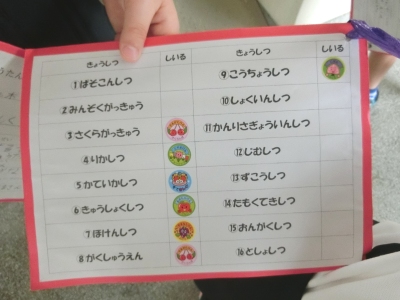 きょうしつ しいる きょうしつ しいる
①ぱそこんしつ
②みんぞくがっきゅう
③さくらがっきゅう
④りかしつ
⑤かていかしつ
⑥きゅうしょくしつ
⑦ほけんしつ
⑧がくしゅうえん
⑨こうちょうしつ
⑩しょくいんしつ
⑪かんりさぎょういんしつ
⑫じむしつ
⑬ずこうしつ
⑭たもくてきしつ
⑮おんがくしつ
⑯としょしつ